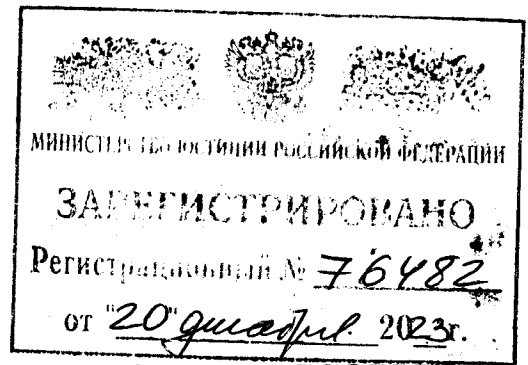 МИНИСТЕРСТВО ЮСТИЦИИ РОССИЙСКОЙ ФЕДЕРАЦИИ
ЗАРЕГИСТРИРОВАНО
Регистрационный № 76482
от "20" декабря 2023г.